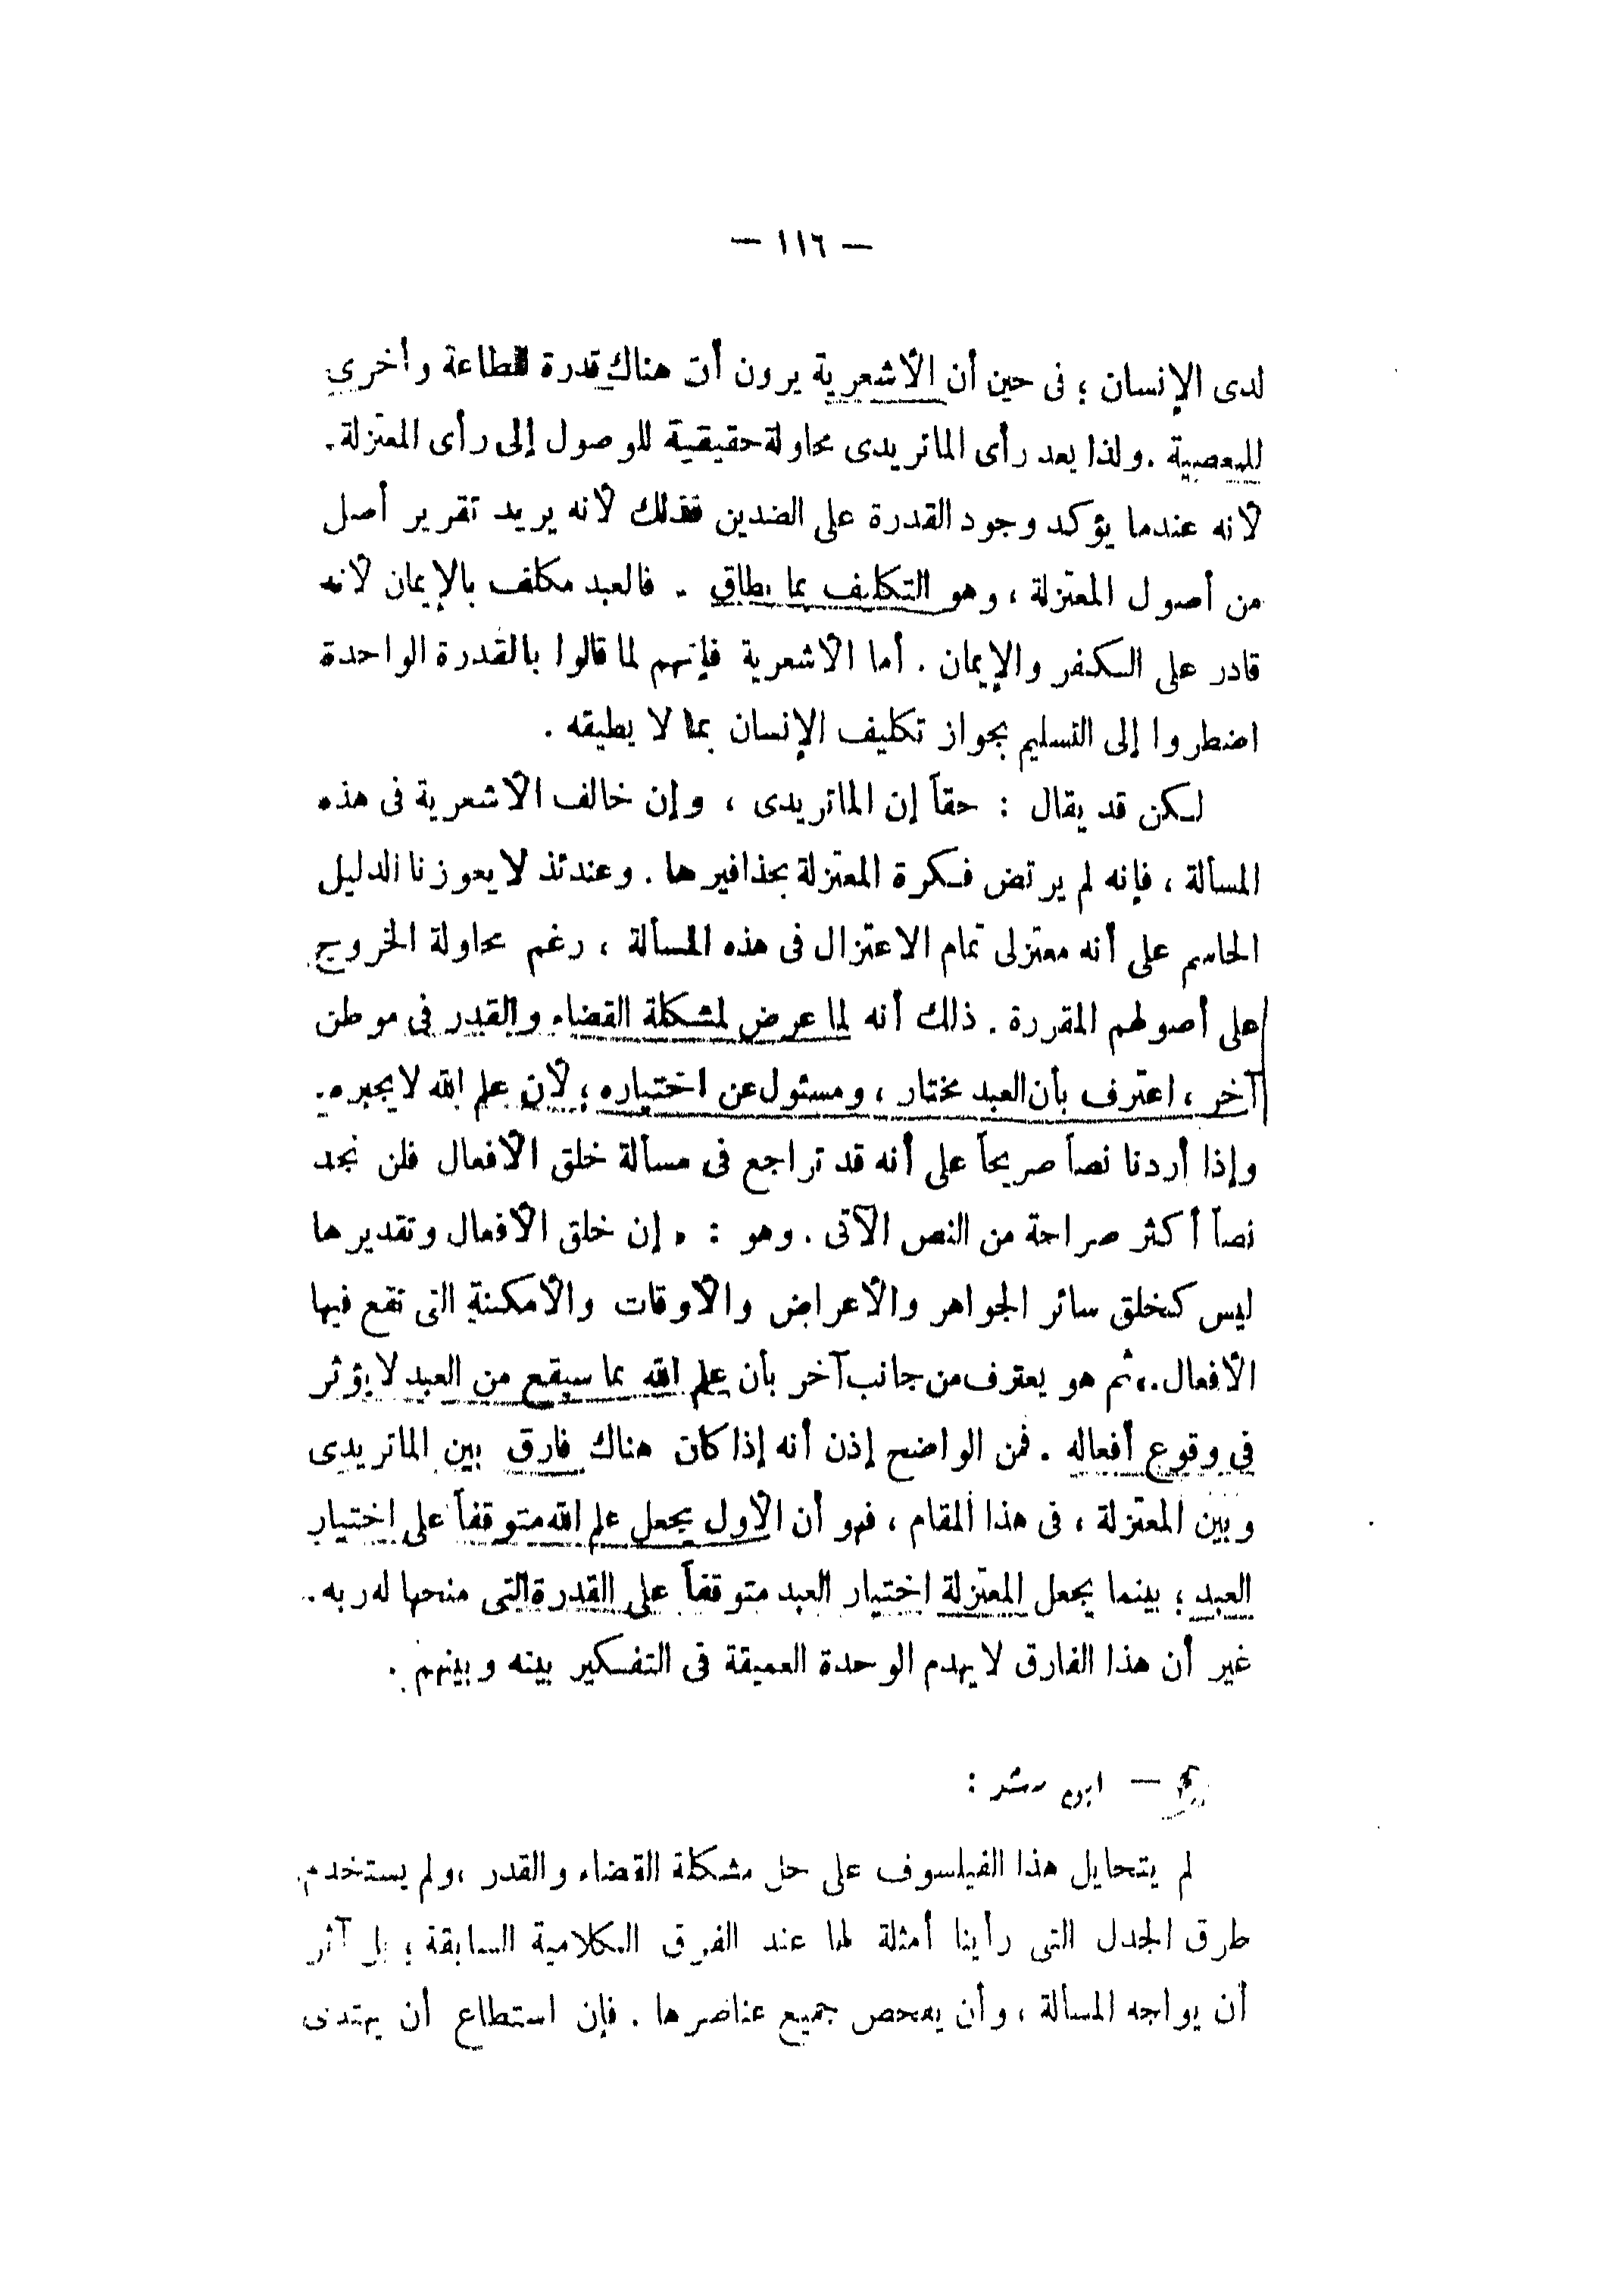 — ١١٦ —
لدى الإنسان ؛ فى حين أن الأشعرية يرون أن هناك قدرة للطاعة وأخرى
للمعصية . ولذا يعد رأى الماتريدى محاولة حقيقية للوصول إلى رأى المعتزلة .
لأنه عندما يؤكد وجود القدرة على الضدين فذلك لأنه يريد تقرير أصل
من أصول المعتزلة ، وهو التكليف بما يطاق . فالعبد مكلف بالإيمان لأنه
قادر على الكفر والإيمان . أما الأشعرية فإنهم لما قالوا بالقدرة الواحدة
اضطروا إلى التسليم بجواز تكليف الإنسان بما لا يطيقه .
لكن قد يقال : حقاً إن الماتريدى ، وإن خالف الأشعرية فى هذه
المسألة ، فإنه لم يرتض فكرة المعتزلة بحذافيرها . وعندئذ لا يعوزنا الدليل
الحاسم على أنه معتزلى تمام الاعتزال فى هذه المسألة ، رغم محاولة الخروج
على أصولهم المقررة . ذلك أنه لما عرض لمشكلة القضاء والقدر فى موطن
آخر ، اعترف بأن العبد مختار ، ومسئول عن اختياره ؛ لأن علم الله لا يجبره .
وإذا أردنا نصاً صريحاً على أنه قد تراجع فى مسألة خلق الأفعال فلن نجد
نصاً أكثر صراحة من النص الآتى . وهو : « إن خلق الأفعال وتقديرها
ليس كخلق سائر الجواهر والأعراض والأوقات والأمكنة التى تقع فيها
الأفعال . » ثم هو يعترف من جانب آخر بأن علم الله بما سيقع من العبد لا يؤثر
فى وقوع أفعاله . فمن الواضح إذن أنه إذا كان هناك فارق بين الماتريدى
وبين المعتزلة ، فى هذا المقام ، فهو أن الأول يجعل علم الله متوقفاً على اختيار
العبد ؛ بينما يجعل المعتزلة اختيار العبد متوقفاً على القدرة التى منحها له ربه .
غير أن هذا الفارق لا يهدم الوحدة العميقة فى التفكير بينه وبينهم .
— ابن رشد :
لم يتحايل هذا الفيلسوف على حل مشكلة القضاء والقدر ، ولم يستخدم
طرق الجدل التى رأينا أمثلة لها عند الفرق الكلامية السابقة ؛ بل آثر
أن يواجه المسألة ، وأن يمحص جميع عناصرها . فإن استطاع أن يهتدى